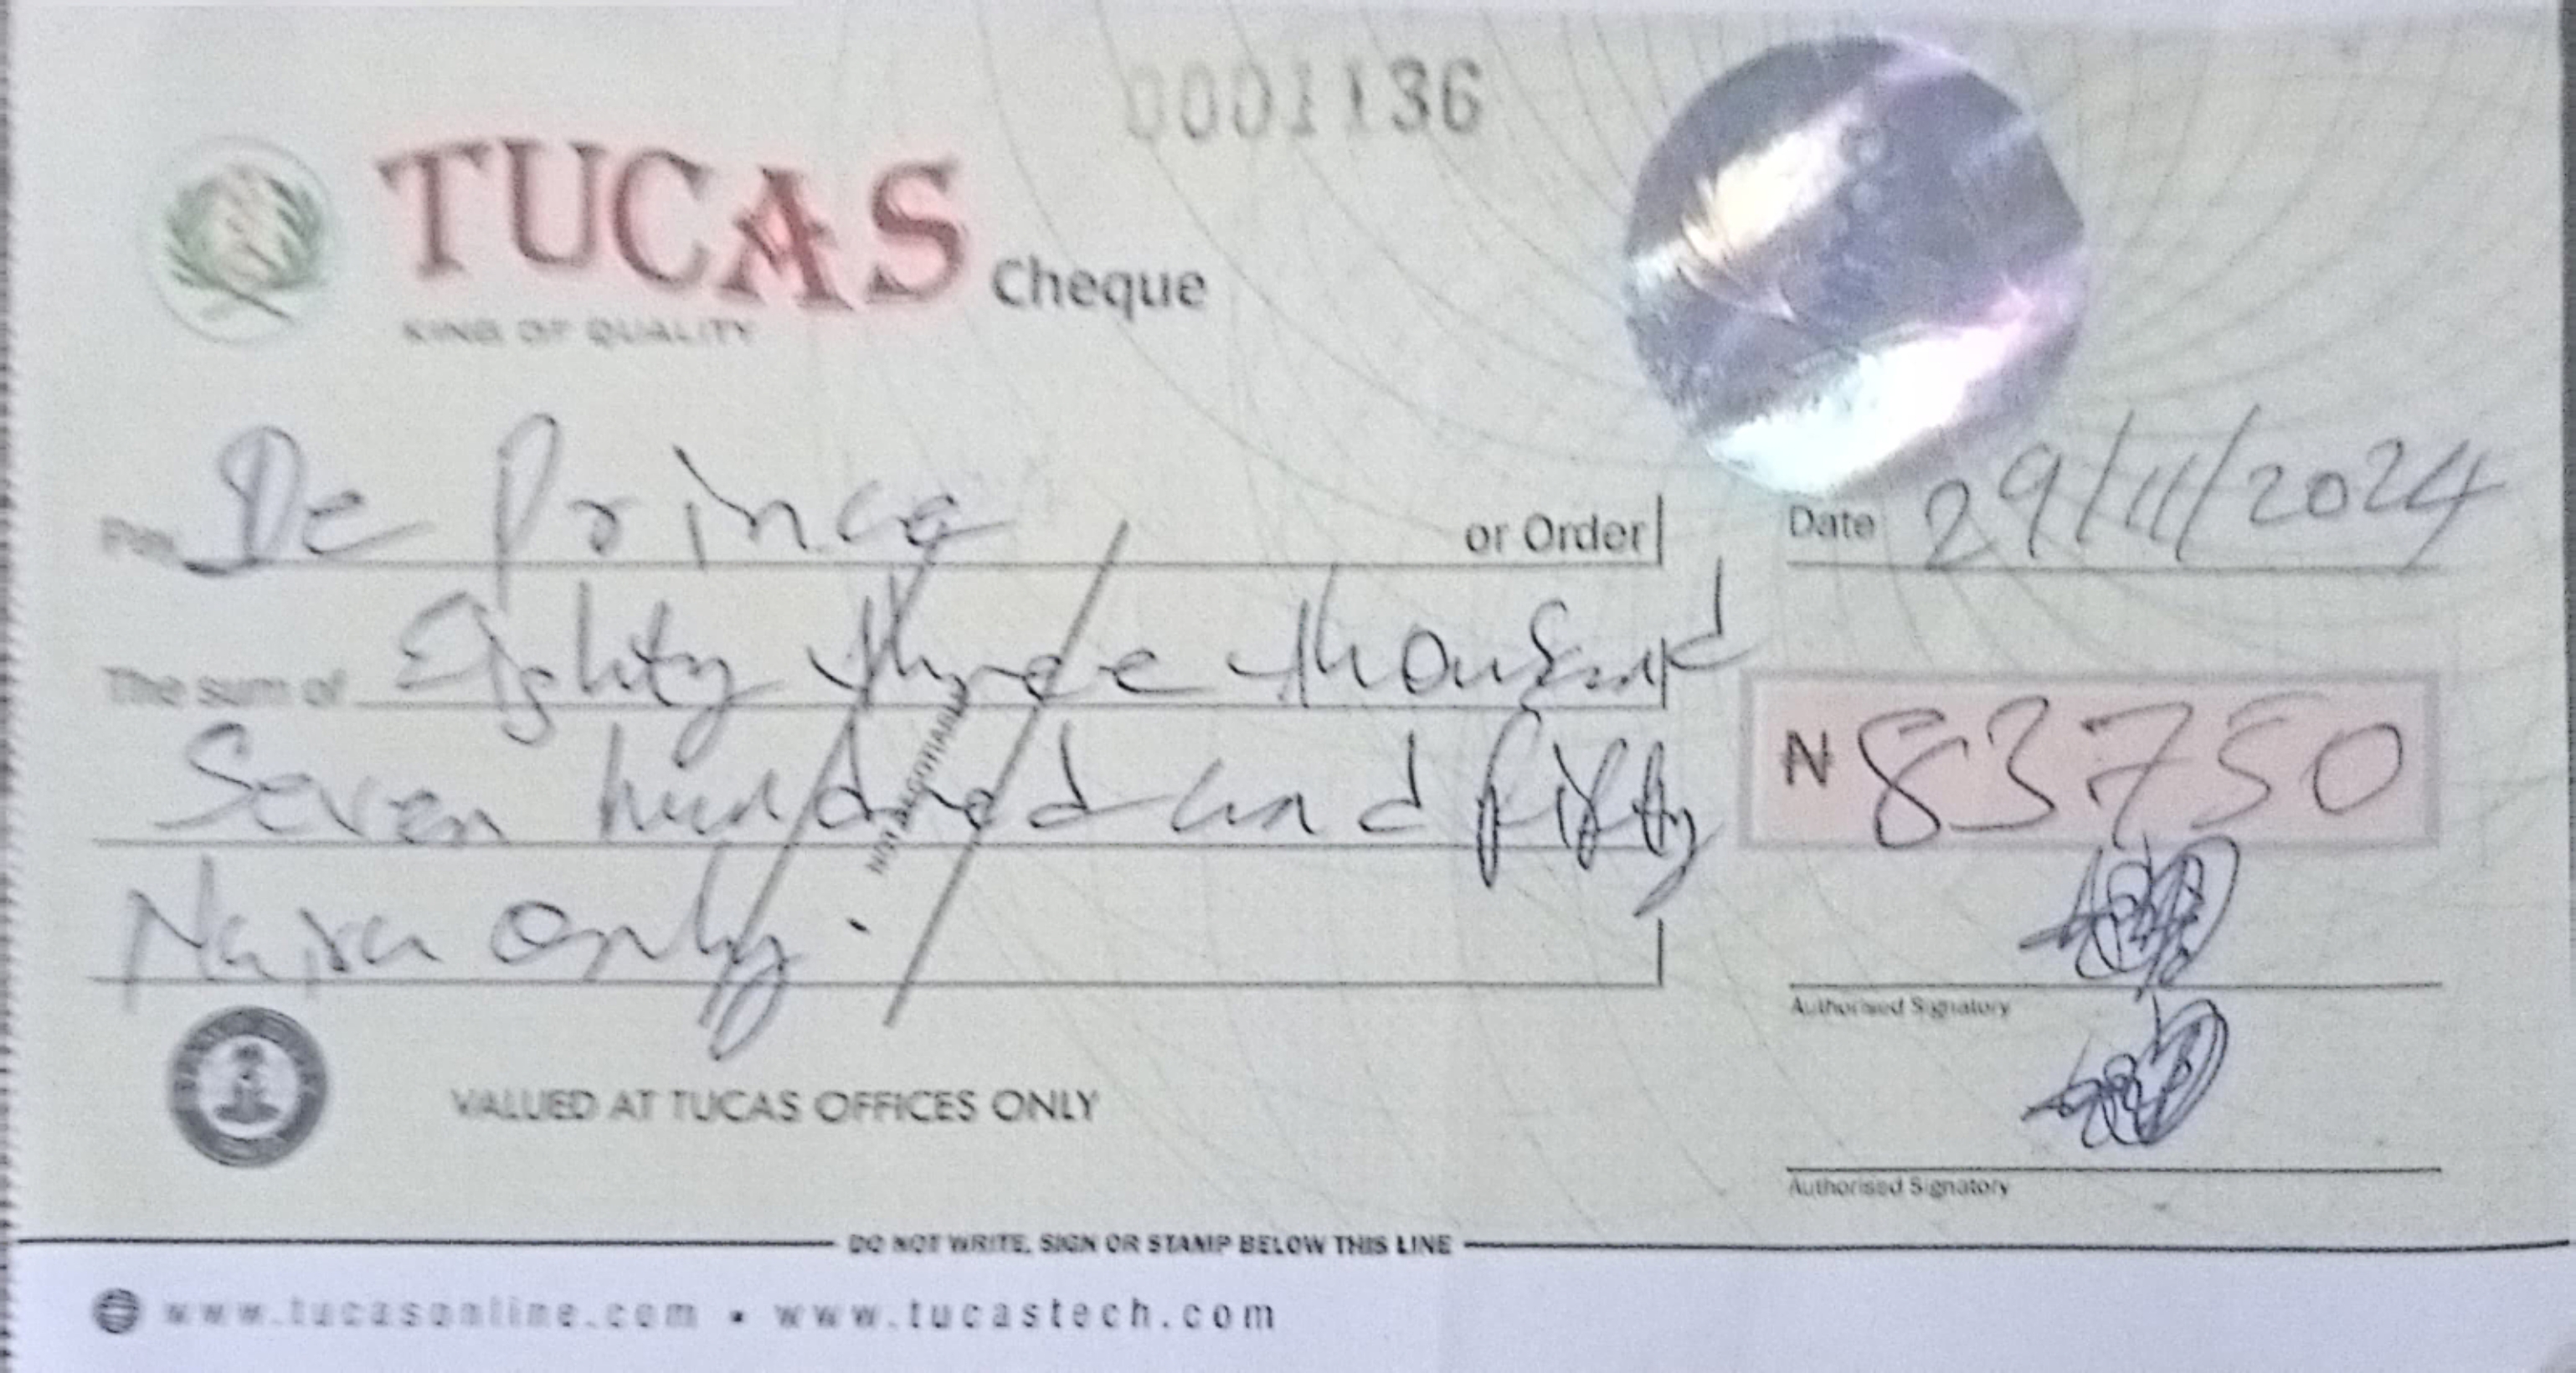 0001136
TUCAS Cheque
KING OF QUALITY
Pay De Prince or Order Date 29/11/2024
The sum of Eighty three thousand
Seven hundred and fifty N 83750
Naira Only.
NOT NEGOTIABLE
Authorised Signatory
VALUED AT TUCAS OFFICES ONLY
Authorised Signatory
DO NOT WRITE, SIGN OR STAMP BELOW THIS LINE
www.tucasonline.com • www.tucastech.com